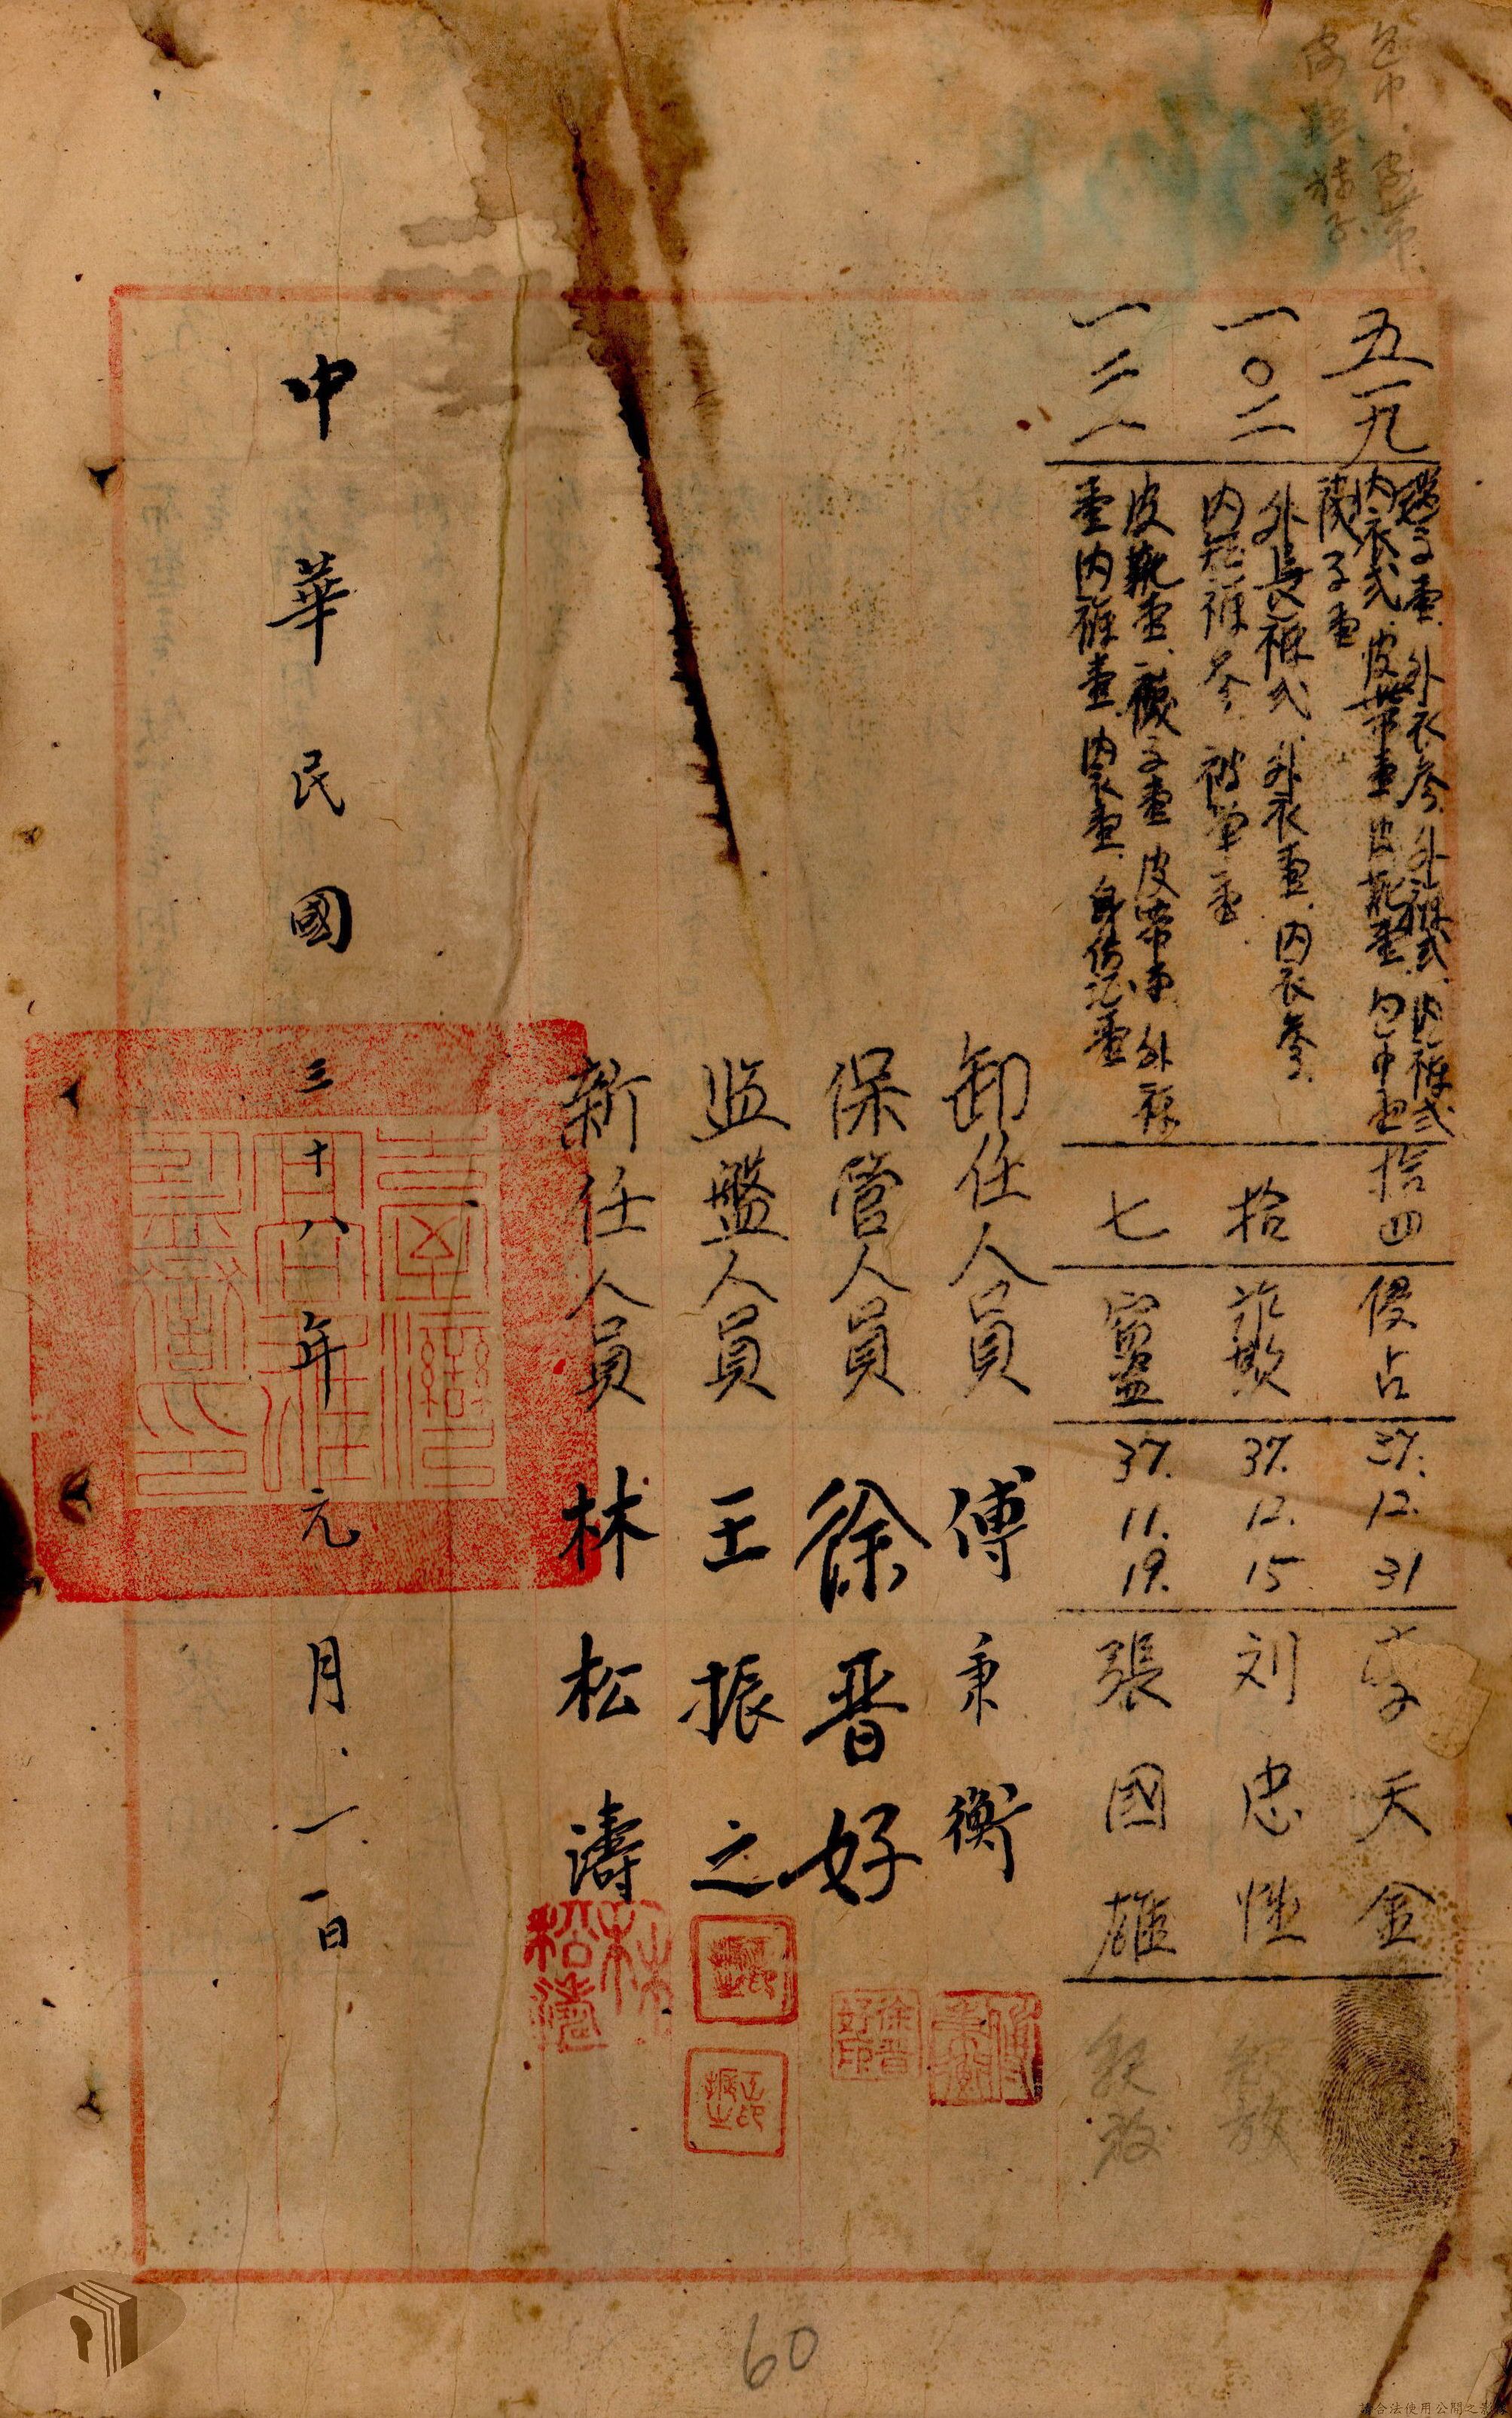 包巾．皮帶．
襪子
五一九
帽子壹．外衣叁．外褲弍．內褲弍
內衣弍．皮帶壹．皮靴壹．包巾壹
襪子壹
拾四
侵占
37.12.31
李天金
一〇二
外長褲弍．外衣壹．內衣叁．
內短褲叁．被單壹
拾
詐欺
37.12.15
刘忠性
釋放
一三一
皮靴壹．襪子壹 皮帶壹 外褲
壹內褲壹．內衣壹．身份証壹
七
竊盗
37.11.19.
張國雄
釋放
卸任人員 傅秉衡
保管人員 徐晋好
監盤人員 王振之
新任人員 林松濤
中華民國三十八年元月一日
徐晋好印
王振之印
林松濤
60
請合法使用公開之影